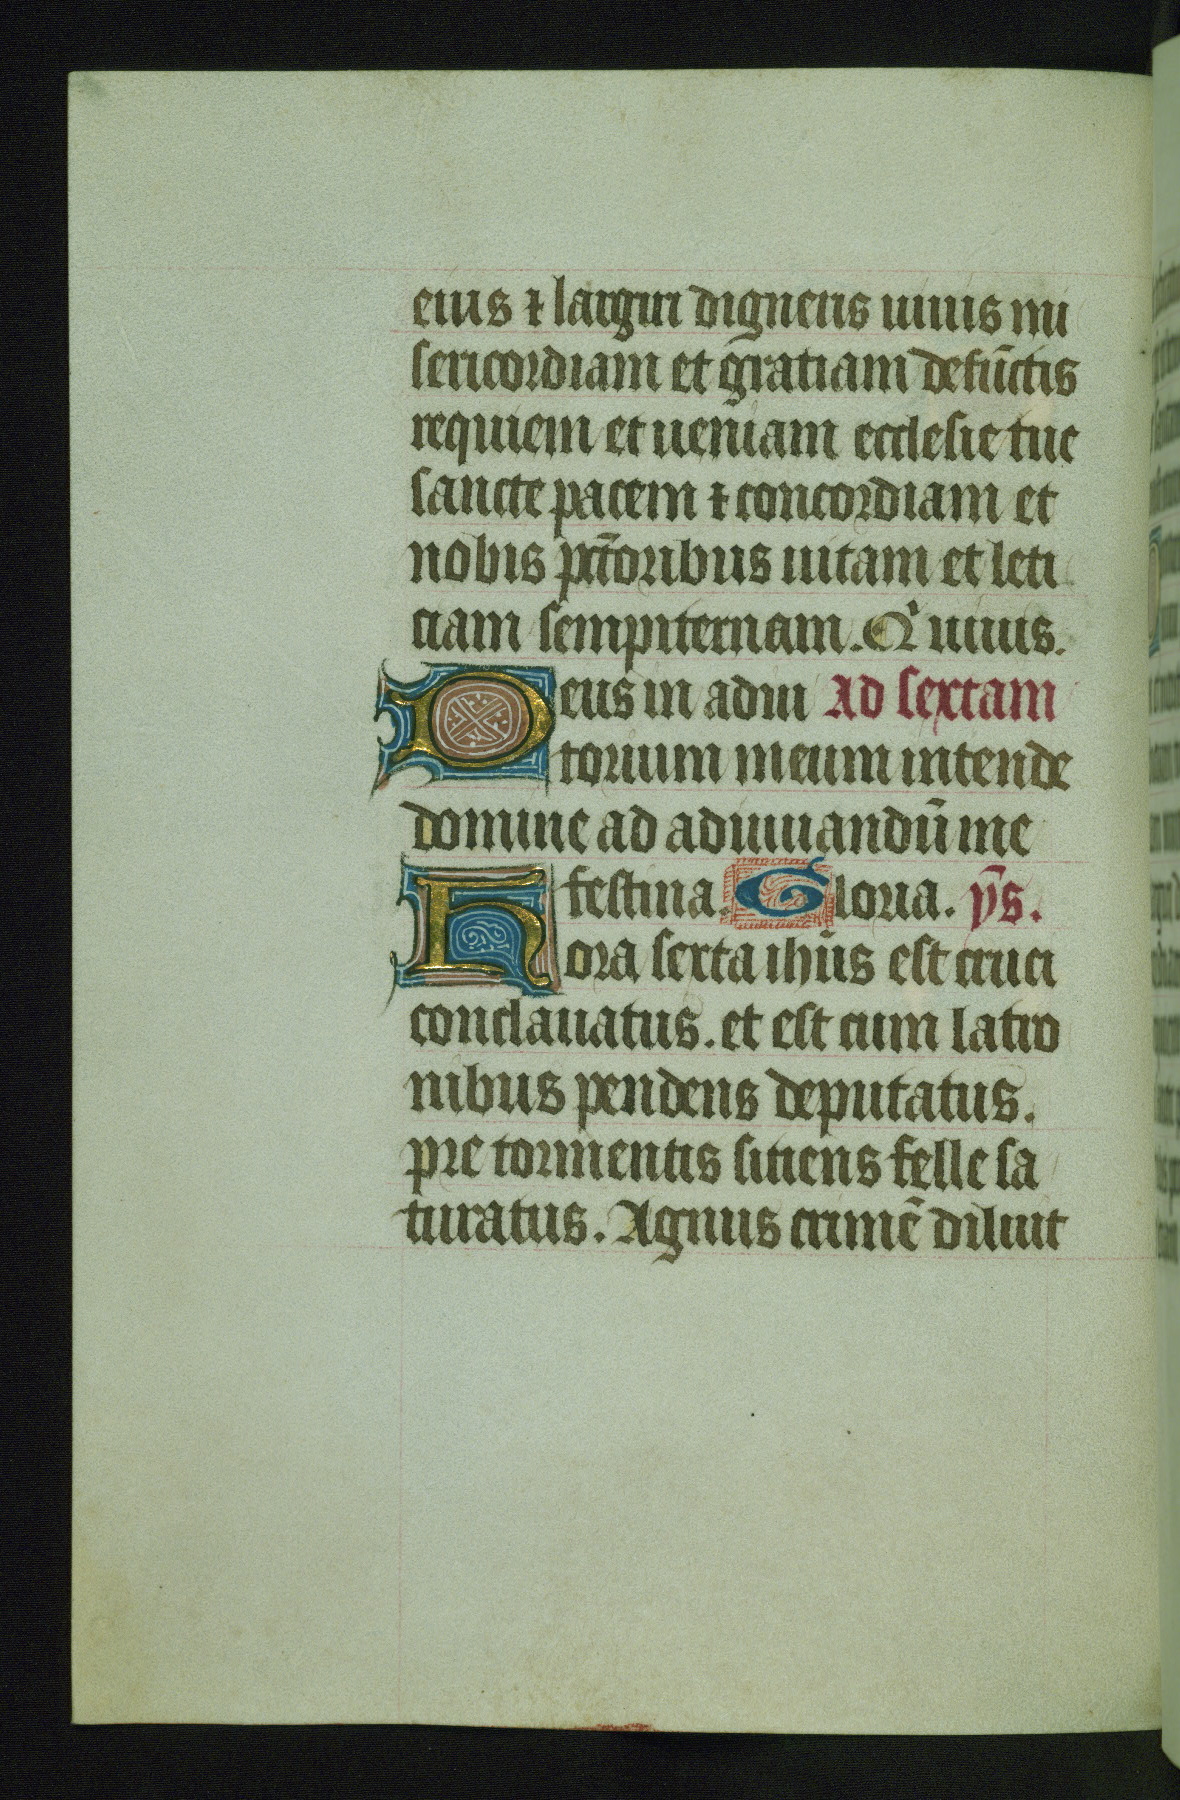 eius ⁊ largiri digneris uiuis mi
sericordiam et gratiam defūctis
requiem et ueniam ecclesie tue
sancte pacem ⁊ concordiam et
nobis pctōribus uitam et leti
ciam sempiternam. Qͥ uiuis.
Deus in adiu Ad sextam
torium meum intende
domine ad adiuuandū me
festina. Gloria. yͫs.
Hora sexta ihūs est cruci
conclauatus. et est cum latro
nibus pendens deputatus.
pre tormentis sitiens felle sa
turatus. Agnus crimē diluit